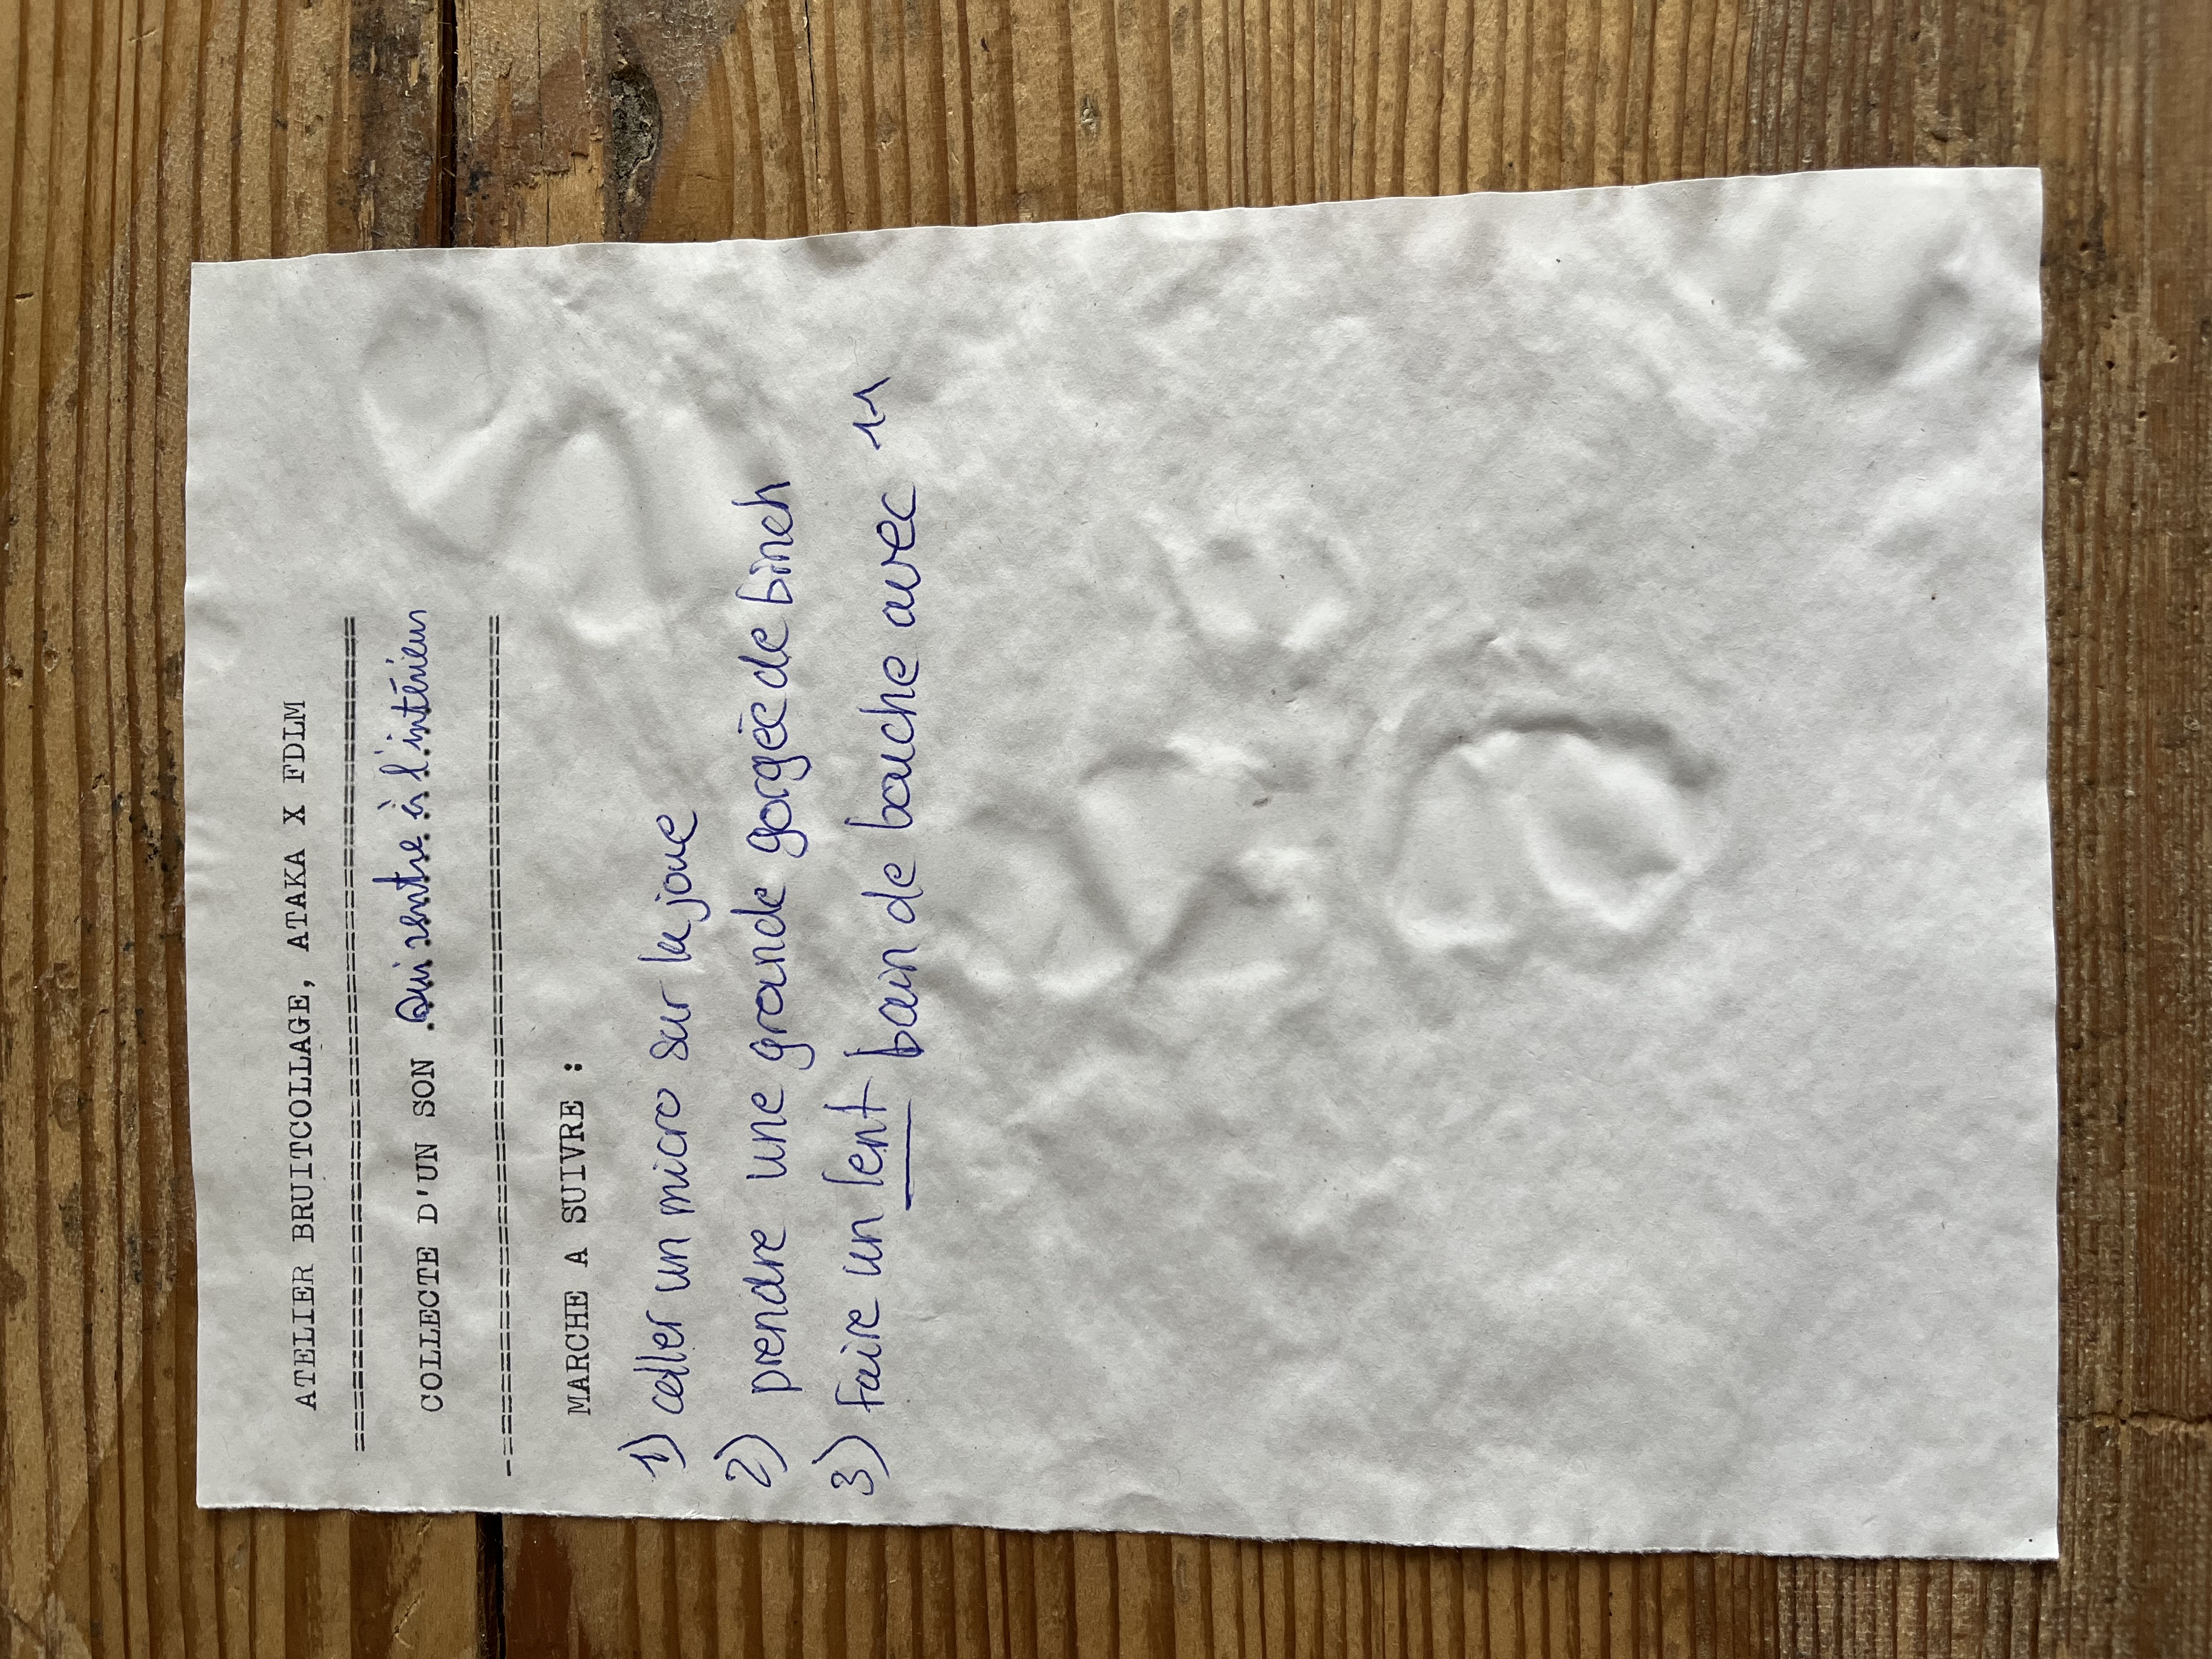 ATELIER BRUITCOLLAGE, ATAKA X FDLM
==============================
COLLECTE D'UN SON Qui rentre à l'intérieur
==============================
MARCHE A SUIVRE :
1) coller un micro sur la joue
2) prendre une grande gorgée de binch
3) faire un lent bain de bouche avec